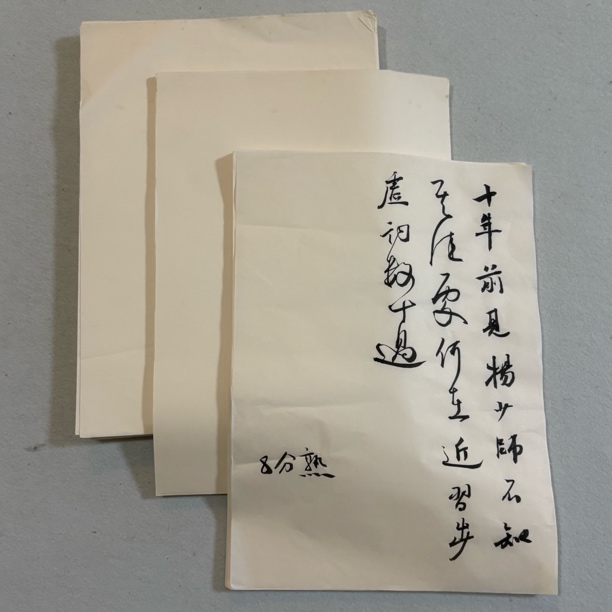 十年前見楊少師不知
其佳處何在近習步
虛詞數十過
8分熟